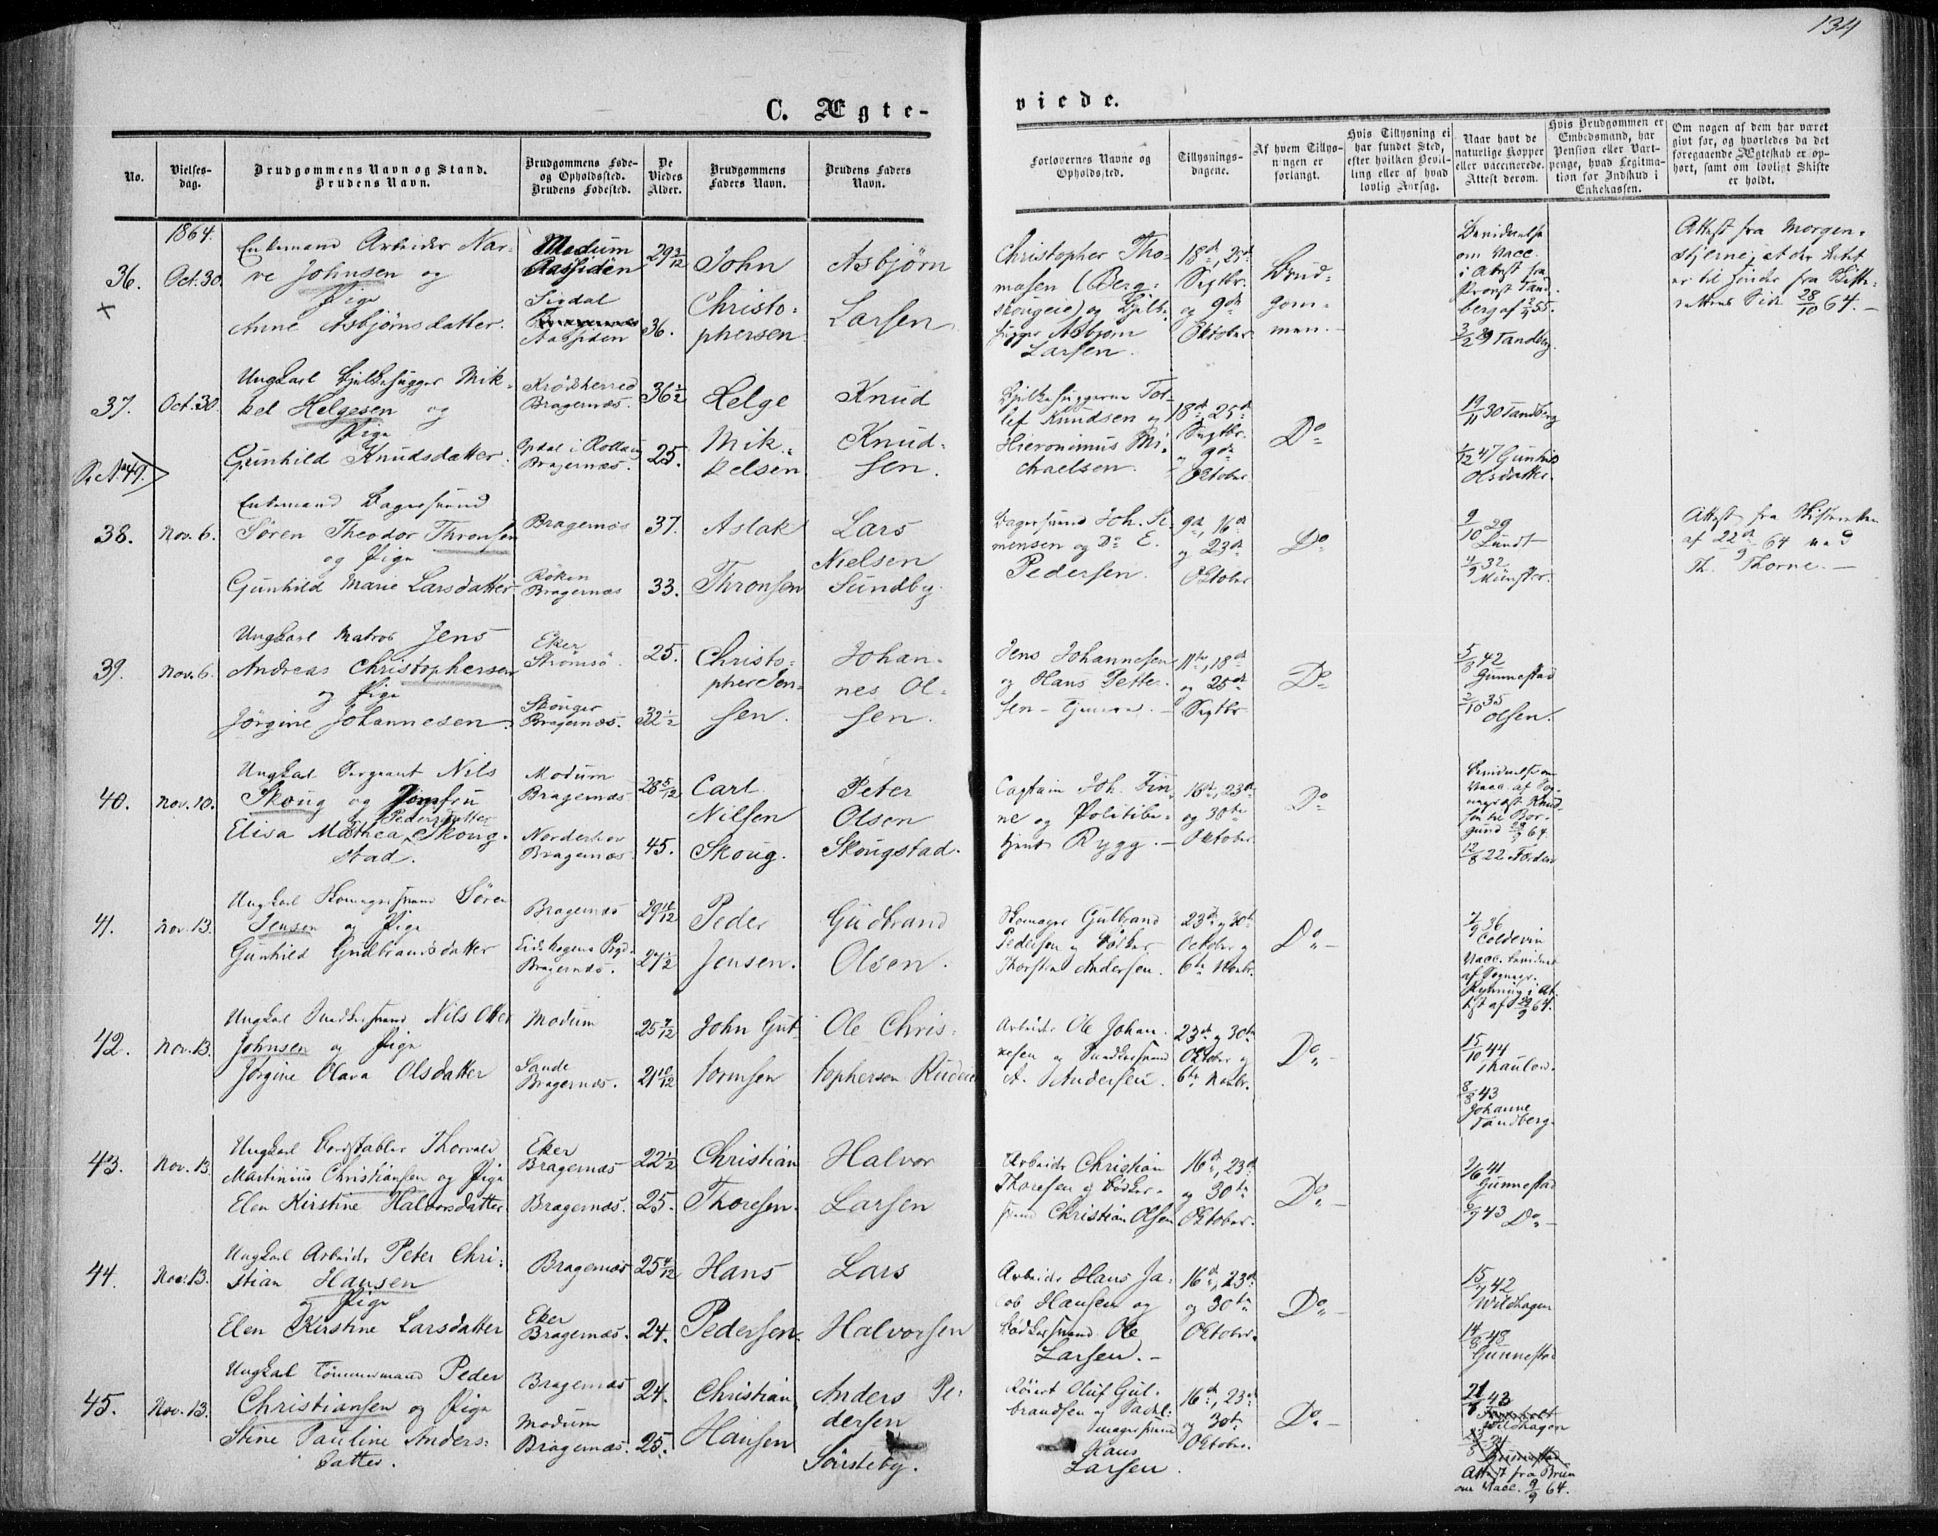 134
C. Ægte-
viede.
No.
Vielses-
dag.
Brudgommens Navn og Stand.
Brudens Navn.
Brudgommens Føde-
og Opholdssted.
Brudens Fødested.
De
Viedes
Alder.
Brudgommens
Faders Navn.
Brudens Faders
Navn.
Forlovernes Navne og
Opholdssted.
Tillysnings-
dagene.
Af hvem Tillys-
ningen er
forlangt.
Hvis Tillysning ei
har fundet Sted,
efter hvilken Bevil-
ling eller af hvad
lovlig Aarsag.
Naar havt de
naturlige Kopper
eller vaccinerede.
Attest derom.
Hvis Brudgommen er
Embedsmand, har
Pension eller Vart-
penge, hvad Legitima-
tion for Indskud i
Enkekassen.
Om nogen af dem har været
givt for, og hvorledes da det
foregaaende Ægteskab er op-
hørt, samt om lovligt Skifte
er holdt.
1864.
36. Oct. 30.
Enkemand Arbeider Nar-
ve Johnsen og
Pige
Anne Asbjørnsdatter.
Modum
Aassiden
Sigdal
Aassiden
29 2/12
36.
John
Christo-
phersen
Asbjørn
Larsen
Christopher Tho-
masen (Berg-
skougeie) og Bjelke-
hugger Asbjørn
Larsen.
18de, 25de
Septbr.
og 9de
Oktober
Brud-
gom-
men.
Bevidnelse
om Vacc.
i Attest fra
Provst Tand-
berg af 55.
3/12 29 Tandberg.
Attest fra Morgen-
stjerne, at der Intet
er til Hinder fra Skifte-
rettens Side 28/10 64.
37. Oct. 30
Ungkarl Bjelkehugger Mik-
kel Helgesen og
Pige
Gunhild Knudsdatter.
Krødsherred
Bragernæs.
Opdal i Rollaug
Bragernæs.
36 1/2
25.
Helge
Mik-
kelsen
Knud
Knud-
sen.
Bjelkehuggerne Tol-
lef Knudsen og
Hieronimus Mi-
chaelsen.
18de, 25de
Septbr.
og 9de
Oktober
Do
19/11 30 Tandberg
1/12 47 Gunhild
Olsdatter.
38. Nov. 6.
Enkemand Bagersvend
Søren Theodor Thronsen
og Pige
Gunhild Marie Larsdatter
Bragernæs
Røken
Bragernæs
37.
33.
Aslak
Thronsen
Lars
Nielsen
Sundby.
Bagersvend Joh. Si-
mensen og Do E.
Pedersen.
9de, 16de
og 23de
Oktober
Do
9/10 29
Lundt
4/9 32
Münster.
Attest fra Skifteretten
af 22de/9 64 ved
Th. Thorne.
39. Nov. 6.
Ungkarl Matros Jens
Andreas Christophersen
og Pige
Jørgine Johannesen.
Eker
Strømsø.
Skouger
Bragernæs.
25.
32 1/2
Christo-
pher Jen-
sen.
Johan-
nes Ol-
sen.
Jens Johannesen
og Hans Pette-
sen
11te, 18de
og 25de
Septbr
Do
5/8 42
Gunnestad
2/10 35
Olsen.
40. Nov. 10.
Ungkarl Sergeant Nils
Skoug og Jomfru
Pedersdatter
Elisa Mathea Skoug-
stad.
Modum
Bragernæs
Norderhov
Bragernæs.
28 5/12
45.
Carl
Nilsen
Skoug.
Peter
Olsen
Skougstad.
Captain Joh. Fin-
ne og Politibe-
tjent Rygg.
16de, 23de
og 30te
Oktober
Do
Bevidnelse om
Vacc. af Sog-
nepræst Knud-
sen til Bor-
gund 64.
12/8 22 Norden
41. Nov. 13.
Ungkarl Skomagersvend Søren
Jensen og Pige
Gunhild Gudbrandsdatter
Bragernæs
Bragernæs.
29 11/12
27 1/2
Peder
Jensen.
Gudbrand
Olsen.
Skomager Gulbrand
Pedersen og Bødker
Thorsten Andersen.
23de og 30te
October og
6te Novbr.
Do
36
Coldevin
Vacc. bevidnet
af Sognepr.
i At-
test af 64.
42. Nov. 13.
Ungkarl Snedkersvend Nils Otter
Johnsen og Pige
Jørgine Olava Olsdatter
Modum
Sande
Bragernæs.
25 7/12
21 10/12
John Gut-
tormsen
Ole Chris-
tophersen Ruden
Arbeider Ole Johan-
nesen og Snedkersvend
A. Andersen.
23de og 30te
Oktober og
6te Novbr.
Do
15/10 44
Thaulow.
8/8 43
Johanne
Tandberg.
43. Nov. 13.
Ungkarl Bordstabler Thorvald
Martinius Christiansen og Pige
Elen Kirstine Halvorsdatter
Eker
Bragernæs
Bragernæs.
22 1/2
25.
Christian
Thoresen.
Halvor
Larsen
Arbeider Christian
Thoresen og Bødker-
svend Christian Olsen
16de, 23de
og 30te
Oktober.
Do
2/6 41
Gunnestad
6/7 43 Do
44. Nov. 13.
Ungkarl Arbeider Peter Chri-
stian Hansen
og Pige
Elen Kirstine Larsdatter
Bragernæs
Eker
Bragernæs.
25 4/12
24.
Hans
Pedersen.
Lars
Halvorsen
Arbeider Hans Ja-
cob Hansen og
Bødkersvend Ole
Larsen.
16de, 23de
og 30te
Oktober.
Do
15/7 42
Wildhagen
14/8 48
Gunnestad
45. Nov. 13.
Ungkarl Tømmermand Peder
Christiansen og Pige
Stine Pauline Anders-
datter.
Bragernæs
Modum
Bragernæs.
24.
25.
Christian
Hansen
Anders Pe-
dersen
Sørsteby.
Oluf Gul-
brandsen og Sadel-
magersvend
Hans
Larsen.
16de, 23de
og 30te
Oktober.
Do
43
Wildhagen
Attest fra Bruun
om Vacc. 9/9 64.